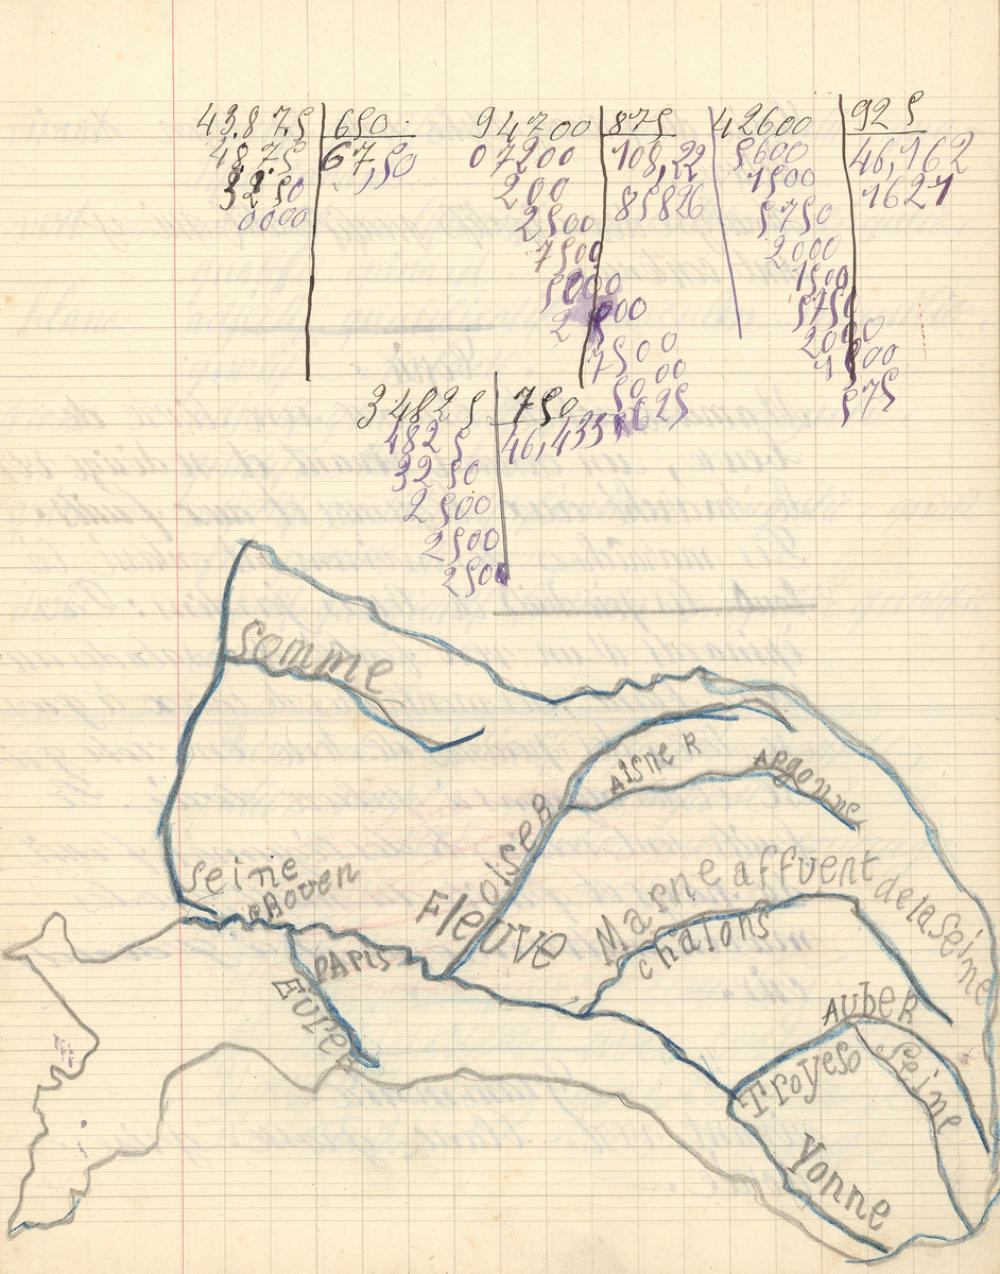 43.875 650
4875 67,50
3250
0000
94700 875
07200 108,22
200 85826
2500
7500
5000
2000
7500
5000
625
42600 925
5600 46,162
1500 1621
5750
2000
1500
5750
2000
1500
575
34825 750
4825 46,433
3250
2500
2500
250
Somme
Aisne R
Argonne
Oise R
Seine
Rouen
Fleuve
Marne affuent de la Seine
chalons
PARIS
Eure R
AUbeR
Troyes
Seine
Yonne